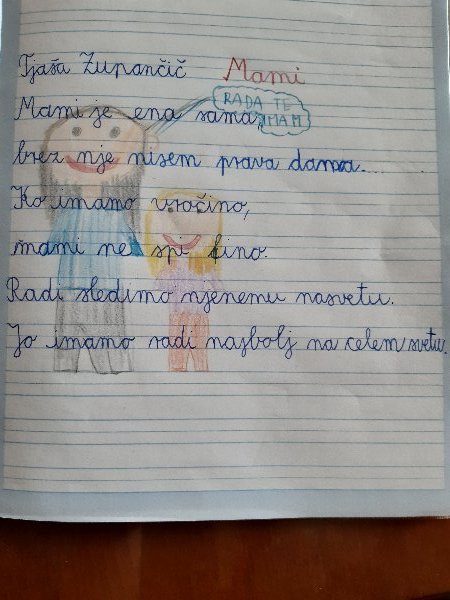 Tjaša Zupančič Mami
RADA TE
IMAM
Mami je ena sama,
brez nje nisem prava dama....
Ko imamo vročino,
mami ne spi fino.
Radi sledimo njenemu nasvetu.
Jo imamo radi najbolj na celem svetu.